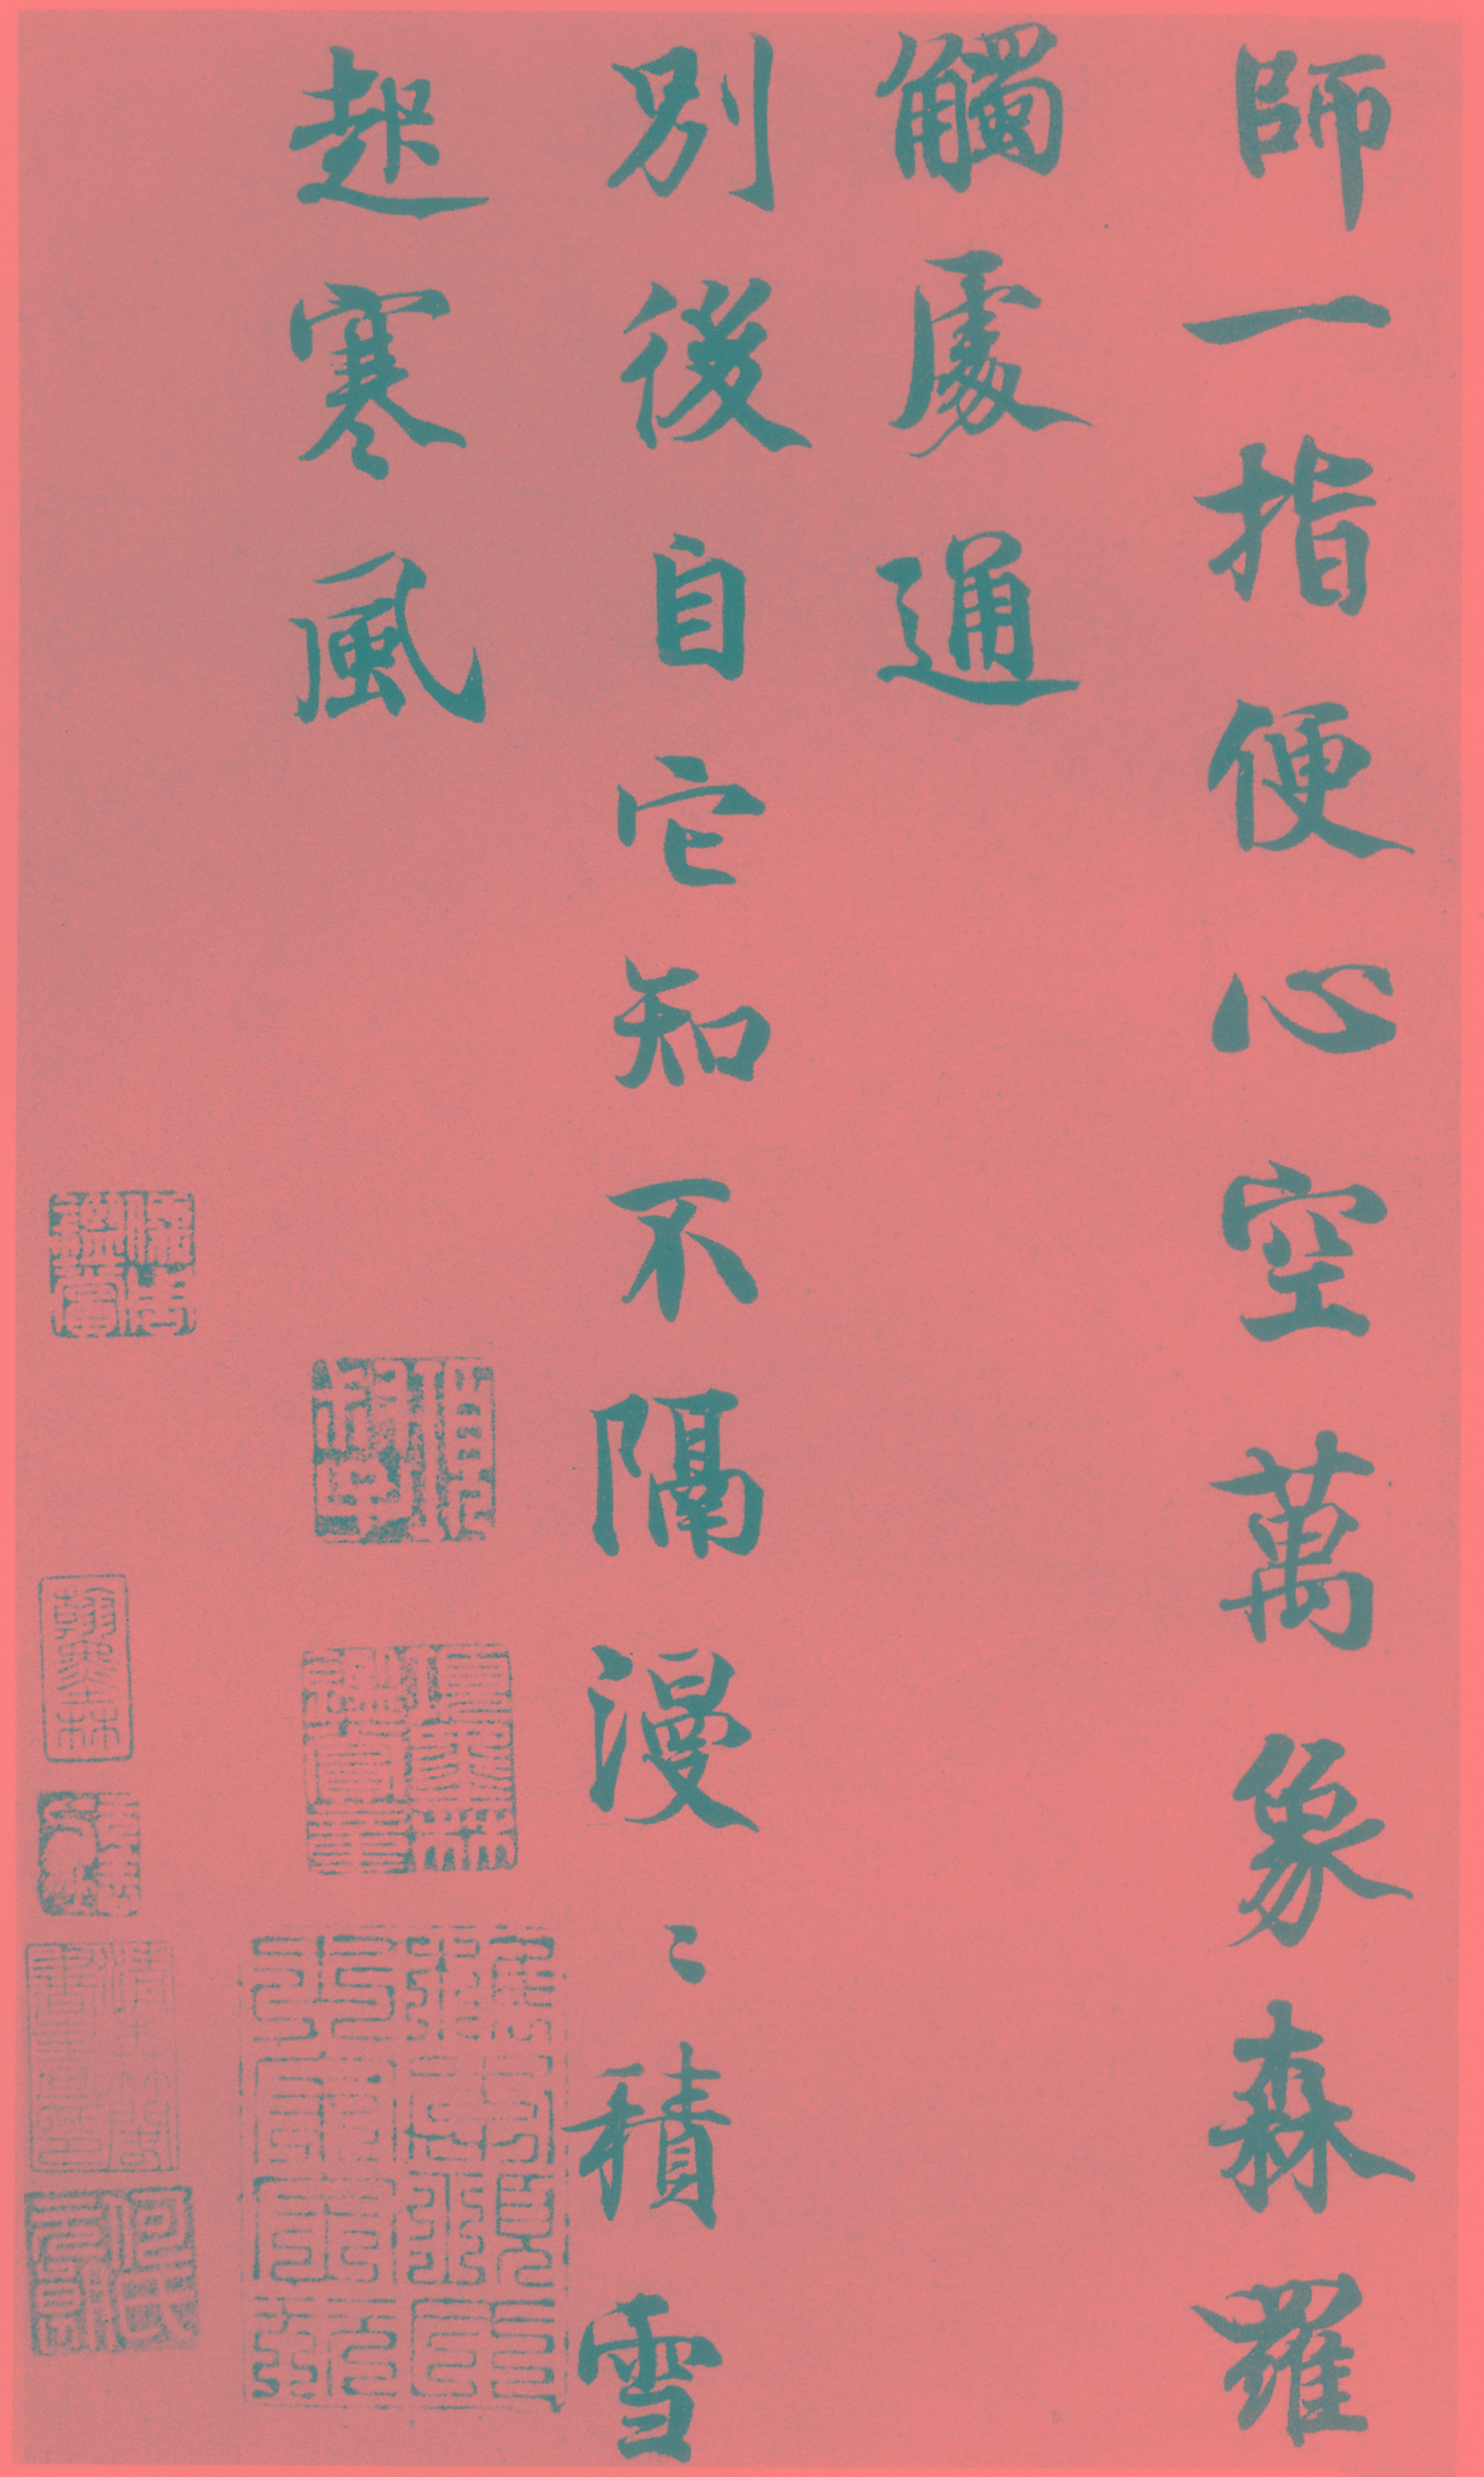 師一指便心空萬象森羅
觸處通
別後自它知不隔漫〻積雪
起寒風